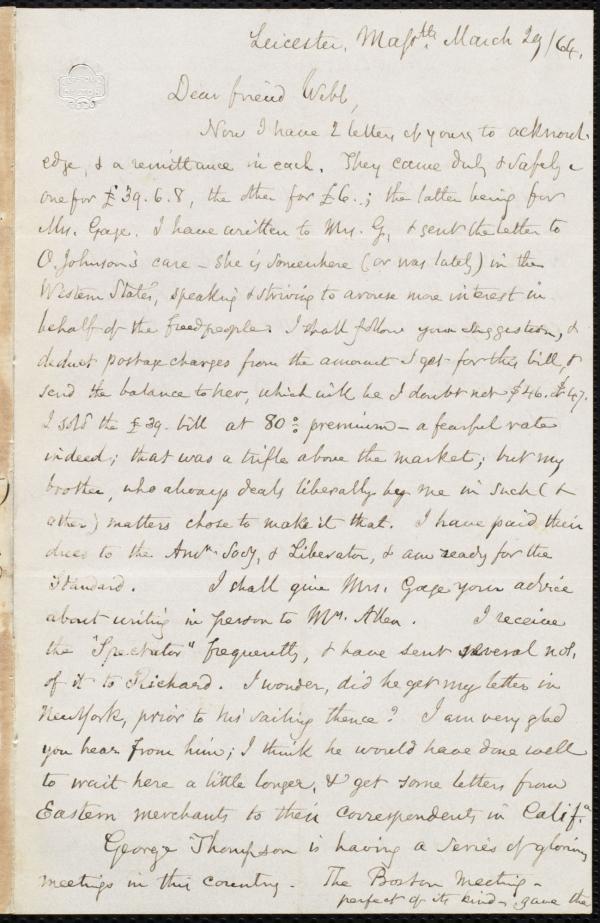 Leicester, Mass'tts March 29/64.
Dear friend Webb,
Now I have 2 letters of yours to acknowl-
edge, & a remittance in each. They came duly & safely,
one for £39.6.8, the other for £6.; the latter being for
Mrs. Gage. I have written to Mrs. G, & sent the letter to
O. Johnson's care - She is somewhere (or was lately) in the
Western States, speaking & striving to arouse more interest in
behalf of the freedpeople. I shall follow your suggestion, &
deduct postage charges from the amount I get for this bill, &
send the balance to her, which will be I doubt not $46. or $47.
I sold the £39. bill at 80 % premium - a fearful rate
indeed; that was a trifle above the market; but my
brother, who always deals liberally by me in such (&
other) matters chose to make it that. I have paid their
dues to the Amn. Socy, & Liberator, & am ready for the
Standard. I shall give Mrs. Gage your advice
about writing in person to Mr. Allen. I receive
the "Spectator" frequently, & have sent several nos.
of it to Richard. I wonder, did he get my letter in
New York, prior to his sailing thence? I am very glad
you hear from him; I think he would have done well
to wait here a little longer, & get some letters from
Eastern merchants to their correspondents in Calif.a
George Thompson is having a series of glorious
meetings in this country. The Boston Meeting -
perfect of its kind - gave the